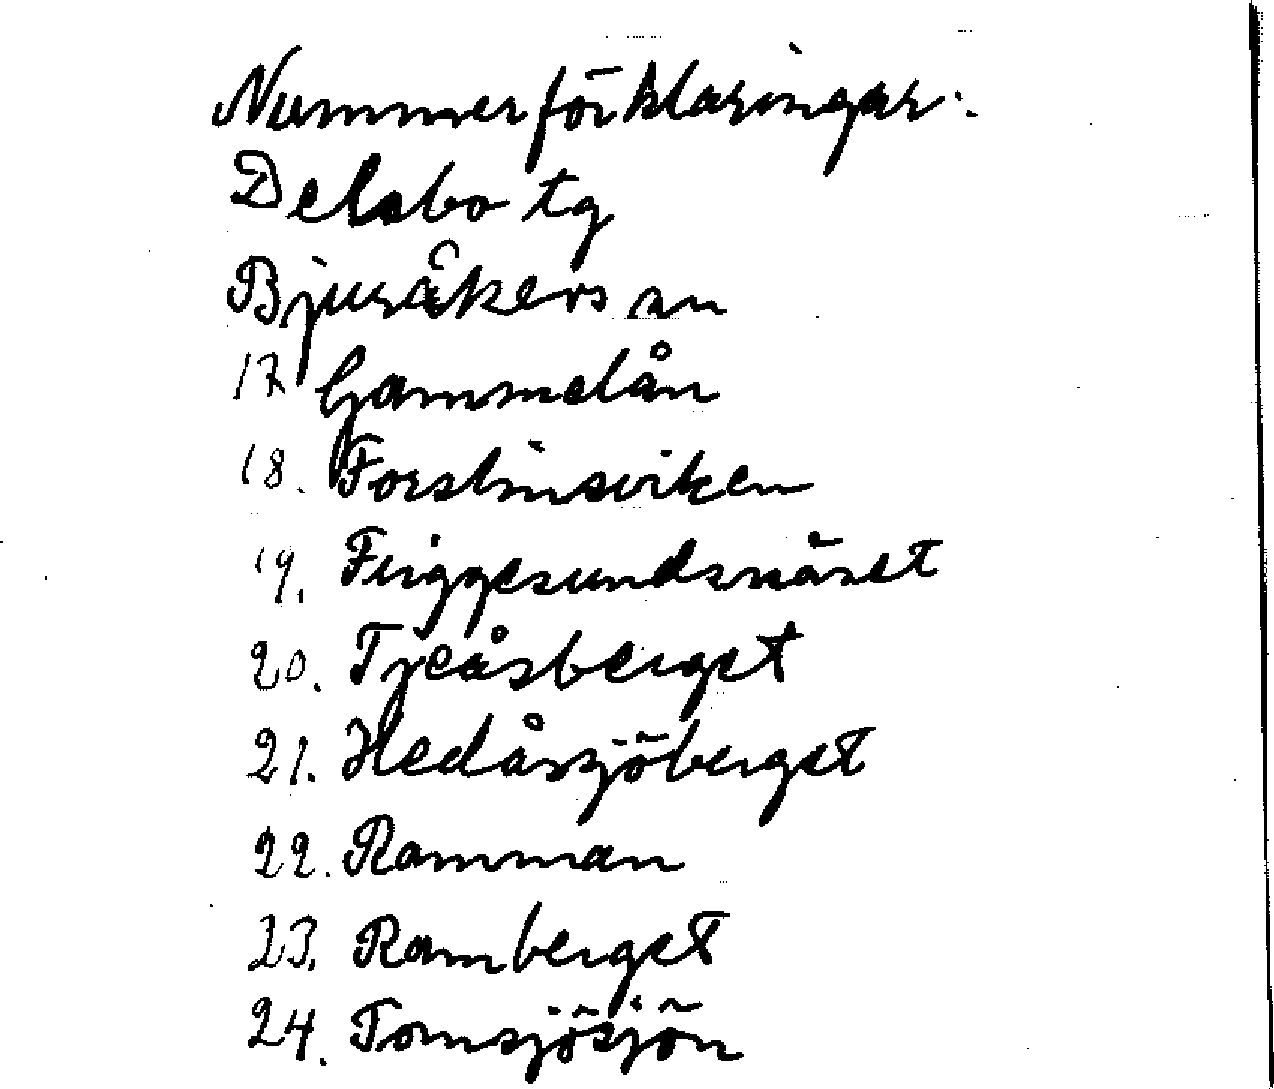 Nummerförklaringar:
Delsbo tg
Bjuråkers sn
17 Gammelån
18. Forslinsviken
19. Friggesundsnäset
20. Tjeåsberget
21. Hedåssjöberget
22. Ramman
23. Ramberget
24. Tomsjösjön